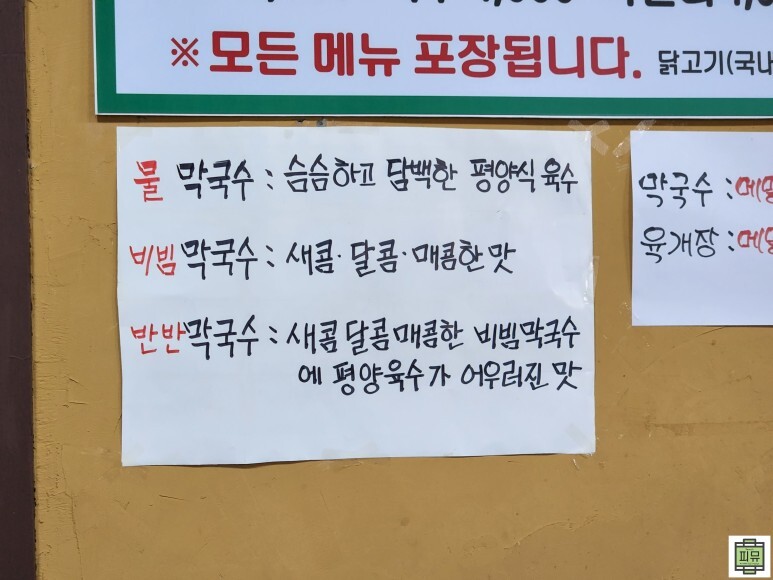 ※ 모든 메뉴 포장됩니다. 닭고기(국내
물 막국수 : 슴슴하고 담백한 평양식 육수
비빔막국수 : 새콤·달콤·매콤한 맛
반반막국수 : 새콤달콤매콤한 비빔막국수
에 평양육수가 어우러진 맛
막국수 : 메밀
육개장 :
피뮤